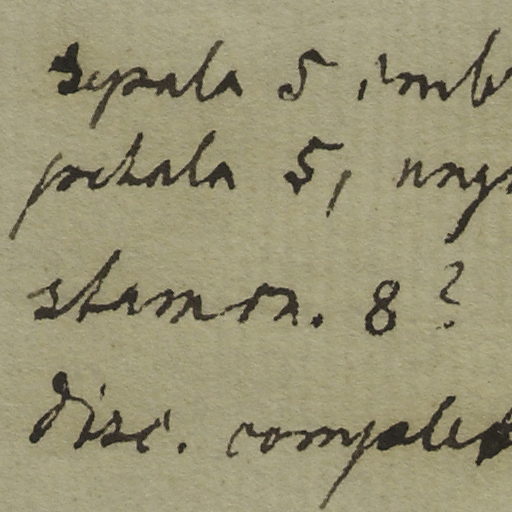 sepala 5 imb
petala 5, ung
stamen. 8?
disc. complet